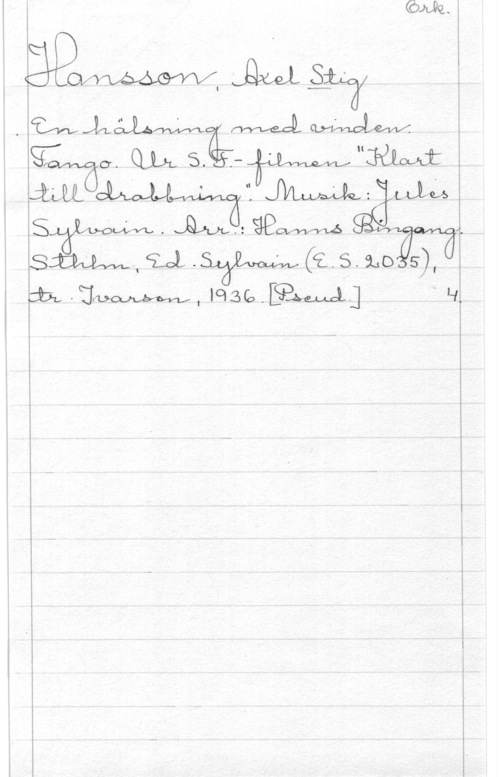 Ork.
Hansson, Axel Stig
En hälsning med vinden.
Tango. Ur S.F.-filmen "Klart
till drabbning". Musik: Jules
Sylvain. Arr.: Hanns Bingang.
Sthlm, Ed. Sylvain (E.S. 2035),
tr. Ivarson, 1936. [Pseud.] 4